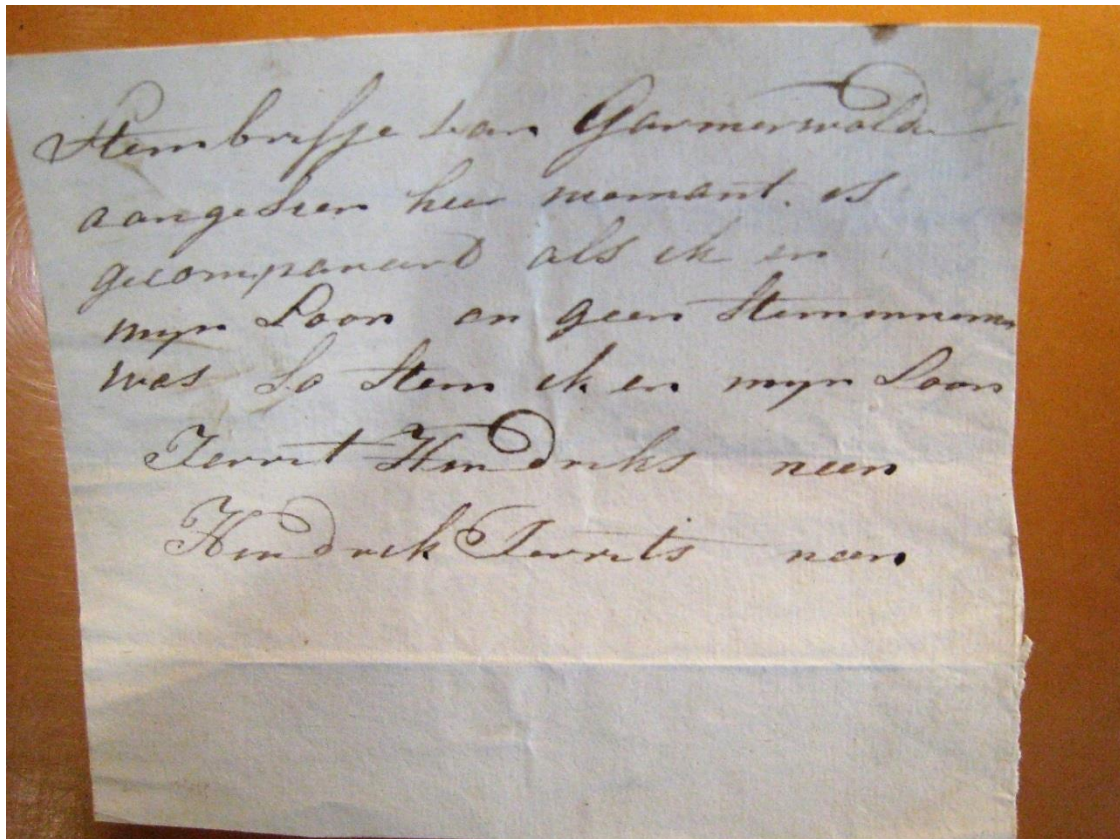 Stembrifje van Garmerwolde
aangesien hier niemant is
gecomparart als ik en
myn Soon en geen Stemminemer
was So Stem ik en myn Soon
Jerrit Hindriks neen
Hindrik Jerrits neen